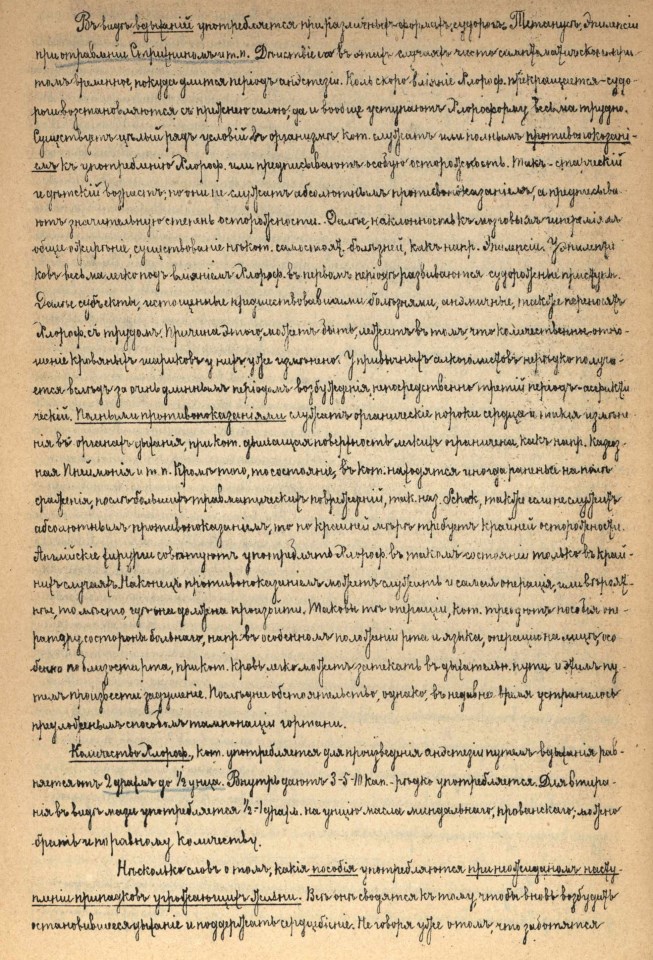 Въ видѣ вдыханій употребляется при различныхъ формахъ судорогъ. Тетанусъ, Эпилепсіи
при отравленіи Стрихниномъ и т.п. Дѣйствіе его въ этихъ случаяхъ чисто симптоматическое и при
томъ временное, покуда длится періодъ анэстезіи. Коль скоро вліяніе Хлороф. прекращается – судо-
роги возстановляются съ прежнею силою, да и вообще уступаютъ Хлороформу весьма трудно.
Существуетъ цѣлый рядъ условій въ организмѣ, кот. служатъ или полнымъ противопоказані-
емъ къ употребленію Хлороф. или предписываютъ особую осторожность. Такъ – старческій
и дѣтскій возрастъ; но они не служатъ абсолютнымъ противопоказаніемъ, а предписыва-
ютъ значительную степень осторожности. Далѣе, наклонность къ мозговымъ гипереміямъ
общее ожирѣніе, существованіе нѣкот. самостоят. болѣзней, какъ напр. Эпилепсіи. У эпилепти-
ковъ весьма легко подъ вліяніемъ Хлороф. въ первомъ періодѣ развиваются судорожные приступы.
Далѣе субъекты, истощенные предшествовавшими болѣзнями, анэмичные, также переносятъ
Хлороф. съ трудомъ. Причина этого, можетъ быть, лежитъ въ томъ что количественное отно-
шеніе кровяныхъ шариковъ у нихъ уже измѣнено. У привычныхъ алкоголистовъ нерѣдко получа-
ется вслѣдъ за очень длиннымъ періодомъ возбужденія непосредственно третій періодъ – асфикти-
ческій. Полными противопоказаніями служатъ органическіе пороки сердца и такія измѣне-
нія въ органахъ дыханія, при кот. дышащая поверхность легкихъ ограничена, какъ напр. Казеоз-
ная Пнеймонія и т.п. Кромѣ того, то состояніе, въ кот. находятся иногда раненые на полѣ
сраженія, послѣ большихъ травматическихъ поврежденій, так. наз. Schok, также если не служитъ
абсолютнымъ противопоказаніемъ, то по крайней мѣрѣ требуетъ крайней осторожности.
Англійскіе хирурги совѣтуютъ употреблять Хлороф. въ такомъ состояніи только въ край-
нихъ случаяхъ. Наконецъ противопоказаніемъ можетъ служить и самая операція, или вѣроят-
нѣе, то мѣсто, гдѣ она должна произойти. Таковы тѣ операціи, кот. требуютъ пособія опе-
ратору со стороны больнаго, напр. въ особенномъ положеніи рта и языка, операціи на лицѣ, осо-
бенно по близости рта, при кот. кровь легко можетъ затекать въ дыхательн. пути и этимъ пу-
темъ произвести задушеніе. Послѣднее обстоятельство, однако, въ недавнее время устранилось
предложеннымъ способомъ тампонаціи гортани.
Количество Хлороф., кот. употребляется для произведенія анэстезіи путемъ вдыханія рав-
няется отъ 2 драхмъ до ½ унца. Внутрь даютъ 3-5-10 кап. – рѣдко употребляется. Для втира-
нія въ видѣ мази употребляется ½-1 драхм. на унцію масла миндальнаго, прованскаго; можно
брать и по равному количеству.
Нѣсколько словъ о томъ, какія пособія употребляются при неожиданомъ насту-
пленіи припадковъ угрожающихъ жизни. Всѣ онѣ сводятся къ тому, чтобы вновь возбудить
остановившееся дыханіе и поддержать сердцебіеніе. Не говоря уже о томъ, что заботятся